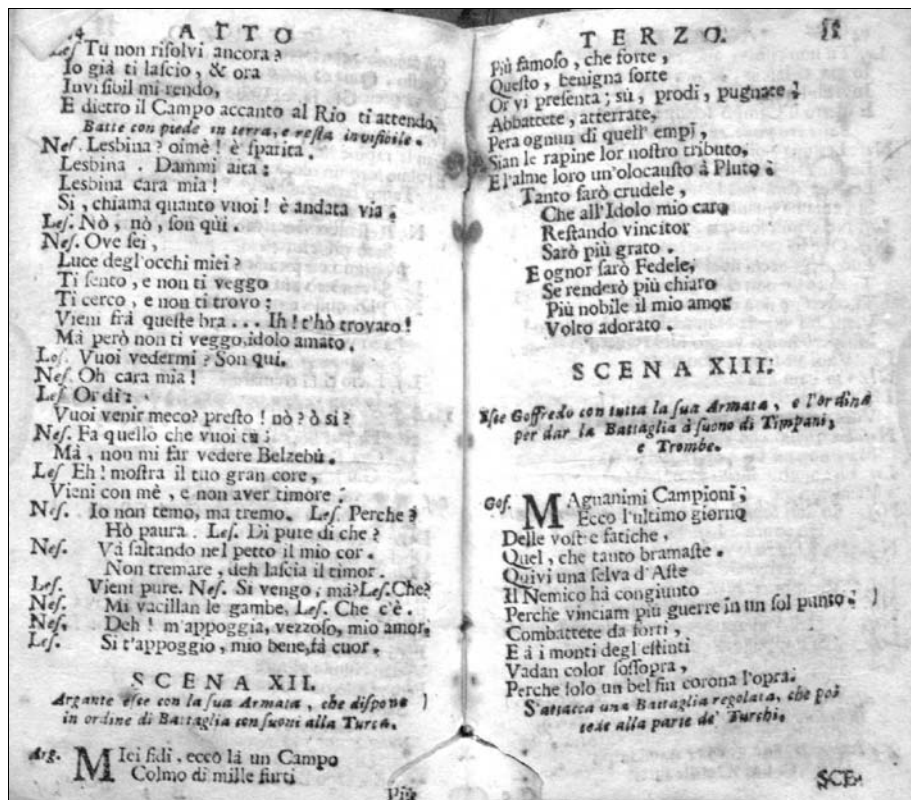 ATTO
Les Tu non risolvi ancora?
Io già ti lascio, & ora
Invisibil mi rendo,
E dietro il Campo accanto al Rio ti attendo,
Batte con piede in terra, e resta invisibile.
Nes. Lesbina? oimè! è sparita.
Lesbina. Dammi aita:
Lesbina cara mia!
Si, chiama quanto vuoi! è andata via.
Les. Nò, nò, son qùi.
Nes. Ove sei,
Luce degl'occhi miei?
Ti sento, e non ti veggo
Ti cerco, e non ti trovo:
Vieni frà queste bra... Ih! t'hò trovato!
Mà però non ti veggo, idolo amato.
Les. Vuoi vedermi? Son qui.
Nes. Oh cara mia!
Les Or dì:
Vuoi venir meco? presto! nò? ò si?
Nes. Fa quello che vuoi tu:
Mà, non mi far vedere Belzebù.
Les Eh! mostra il tuo gran core,
Vieni con mè, e non aver timore:
Nes. Io non temo, ma tremo. Les. Perche?
Hò paura. Les. Di pure di che?
Nes. Và saltando nel petto il mio cor.
Non tremare, deh lascia il timor.
Les. Vieni pure. Nes. Si vengo; mà? Les. Che?
Nes. Mi vacillan le gambe, Les. Che c'è.
Nes. Deh! m'appoggia, vezzoso, mio amor.
Les. Si t'appoggio, mio bene, fà cuor.
SCENA XII.
Argante esce con la sua Armata, che dispone
in ordine di Battaglia con suoni alla Turca.
Arg. MIei fidi, eccò là un Campo
Colmo di mille furti
Più
TERZO.
Più famoso, che forte,
Questo, benigna sorte
Or vi presenta; sù, prodi, pugnate;
Abbattete, atterrate,
Pera ognun di quell' empi,
Sian le rapine lor nostro tributo,
E l'alme loro un'olocausto à Pluto.
Tanto sarò crudele,
Che all'Idolo mio caro
Restando vincitor
Sarò più grato.
E ognor sarò Fedele,
Se renderò più chiaro
Più nobile il mio amor
Volto adorato.
SCENA XIII.
Esce Goffredo con tutta la sua Armata, e l'ordina
per dar la Battaglia à suono di Timpani,
e Trombe.
Gof. MAgnanimi Campioni;
Ecco l'ultimo giorno
Delle vostre fatiche,
Quel, che tanto bramaste.
Quivi una selva d'Aste
Il Nemico hà congiunto
Perche vinciam più guerre in un sol punto.
Combattete da forti,
E à i monti degl estinti
Vadan color sossopra,
Perche solo un bel fin corona l'opra.
S'attacca una Battaglia regolata, che poi
cede alla parte de' Turchi.
SCE-